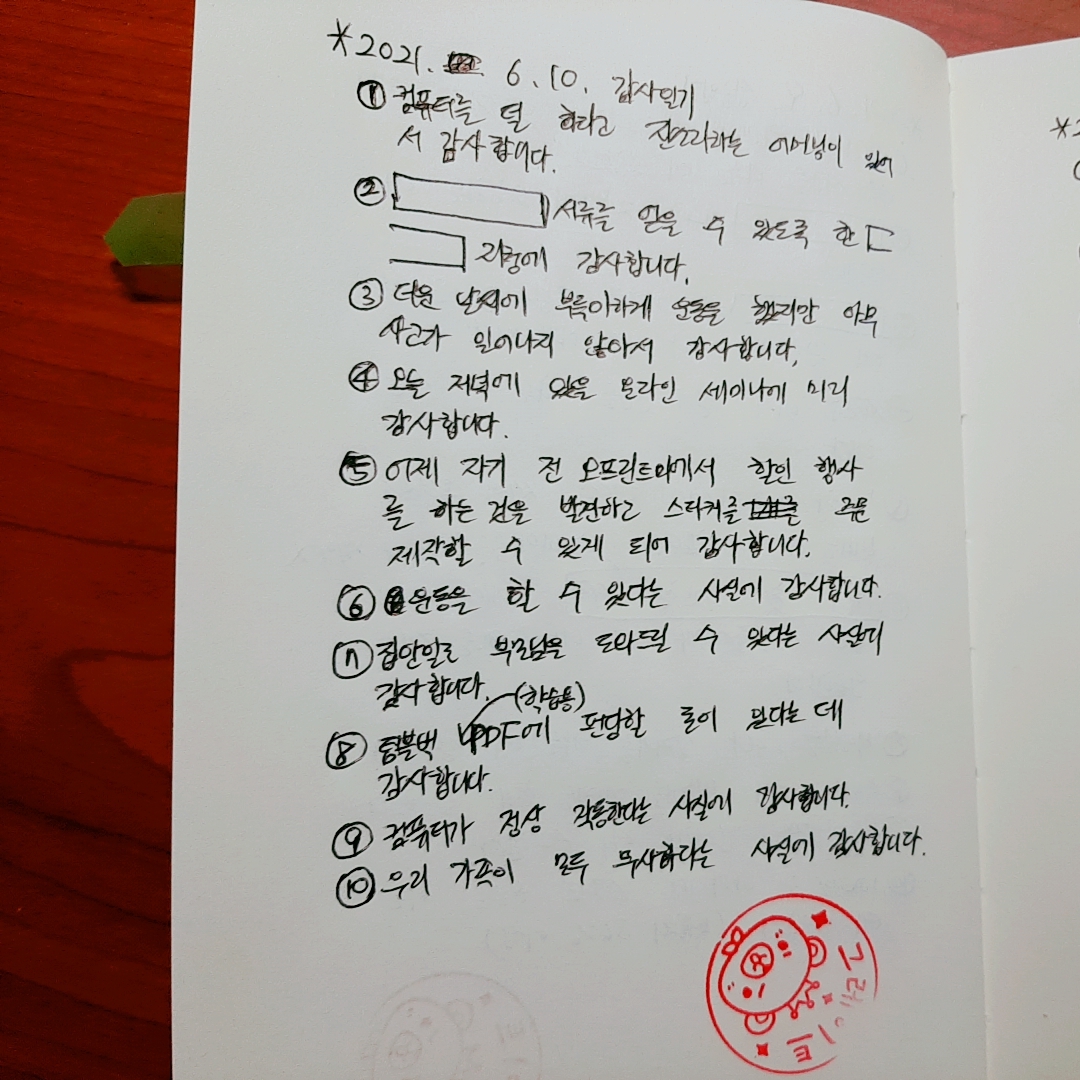 *2021. 6. 10. 감사일기
① 컴퓨터를 덜 하라고 잔소리하는 어머님이 있어
서 감사합니다.
② 서류를 얻을 수 있도록 한
감사합니다.
③ 더운 날씨에 부득이하게 운동을 했지만 아무
사고가 일어나지 않아서 감사합니다.
④ 오늘 저녁에 있을 온라인 세미나에 미리
감사합니다.
⑤ 어제 자기 전 오프린트미에서 할인 행사
를 하는 것을 발견하고 스티커를 주문
제작할 수 있게 되어 감사합니다.
⑥ 운동을 할 수 있다는 사실에 감사합니다.
⑦ 집안일로 부모님을 도와드릴 수 있다는 사실에
감사합니다.
(학습통)
⑧ 텀블벅 PDF에 펀딩할 돈이 있다는 데
감사합니다.
⑨ 컴퓨터가 정상 작동한다는 사실에 감사합니다.
⑩ 우리 가족이 모두 무사하다는 사실에 감사합니다.
그레이트